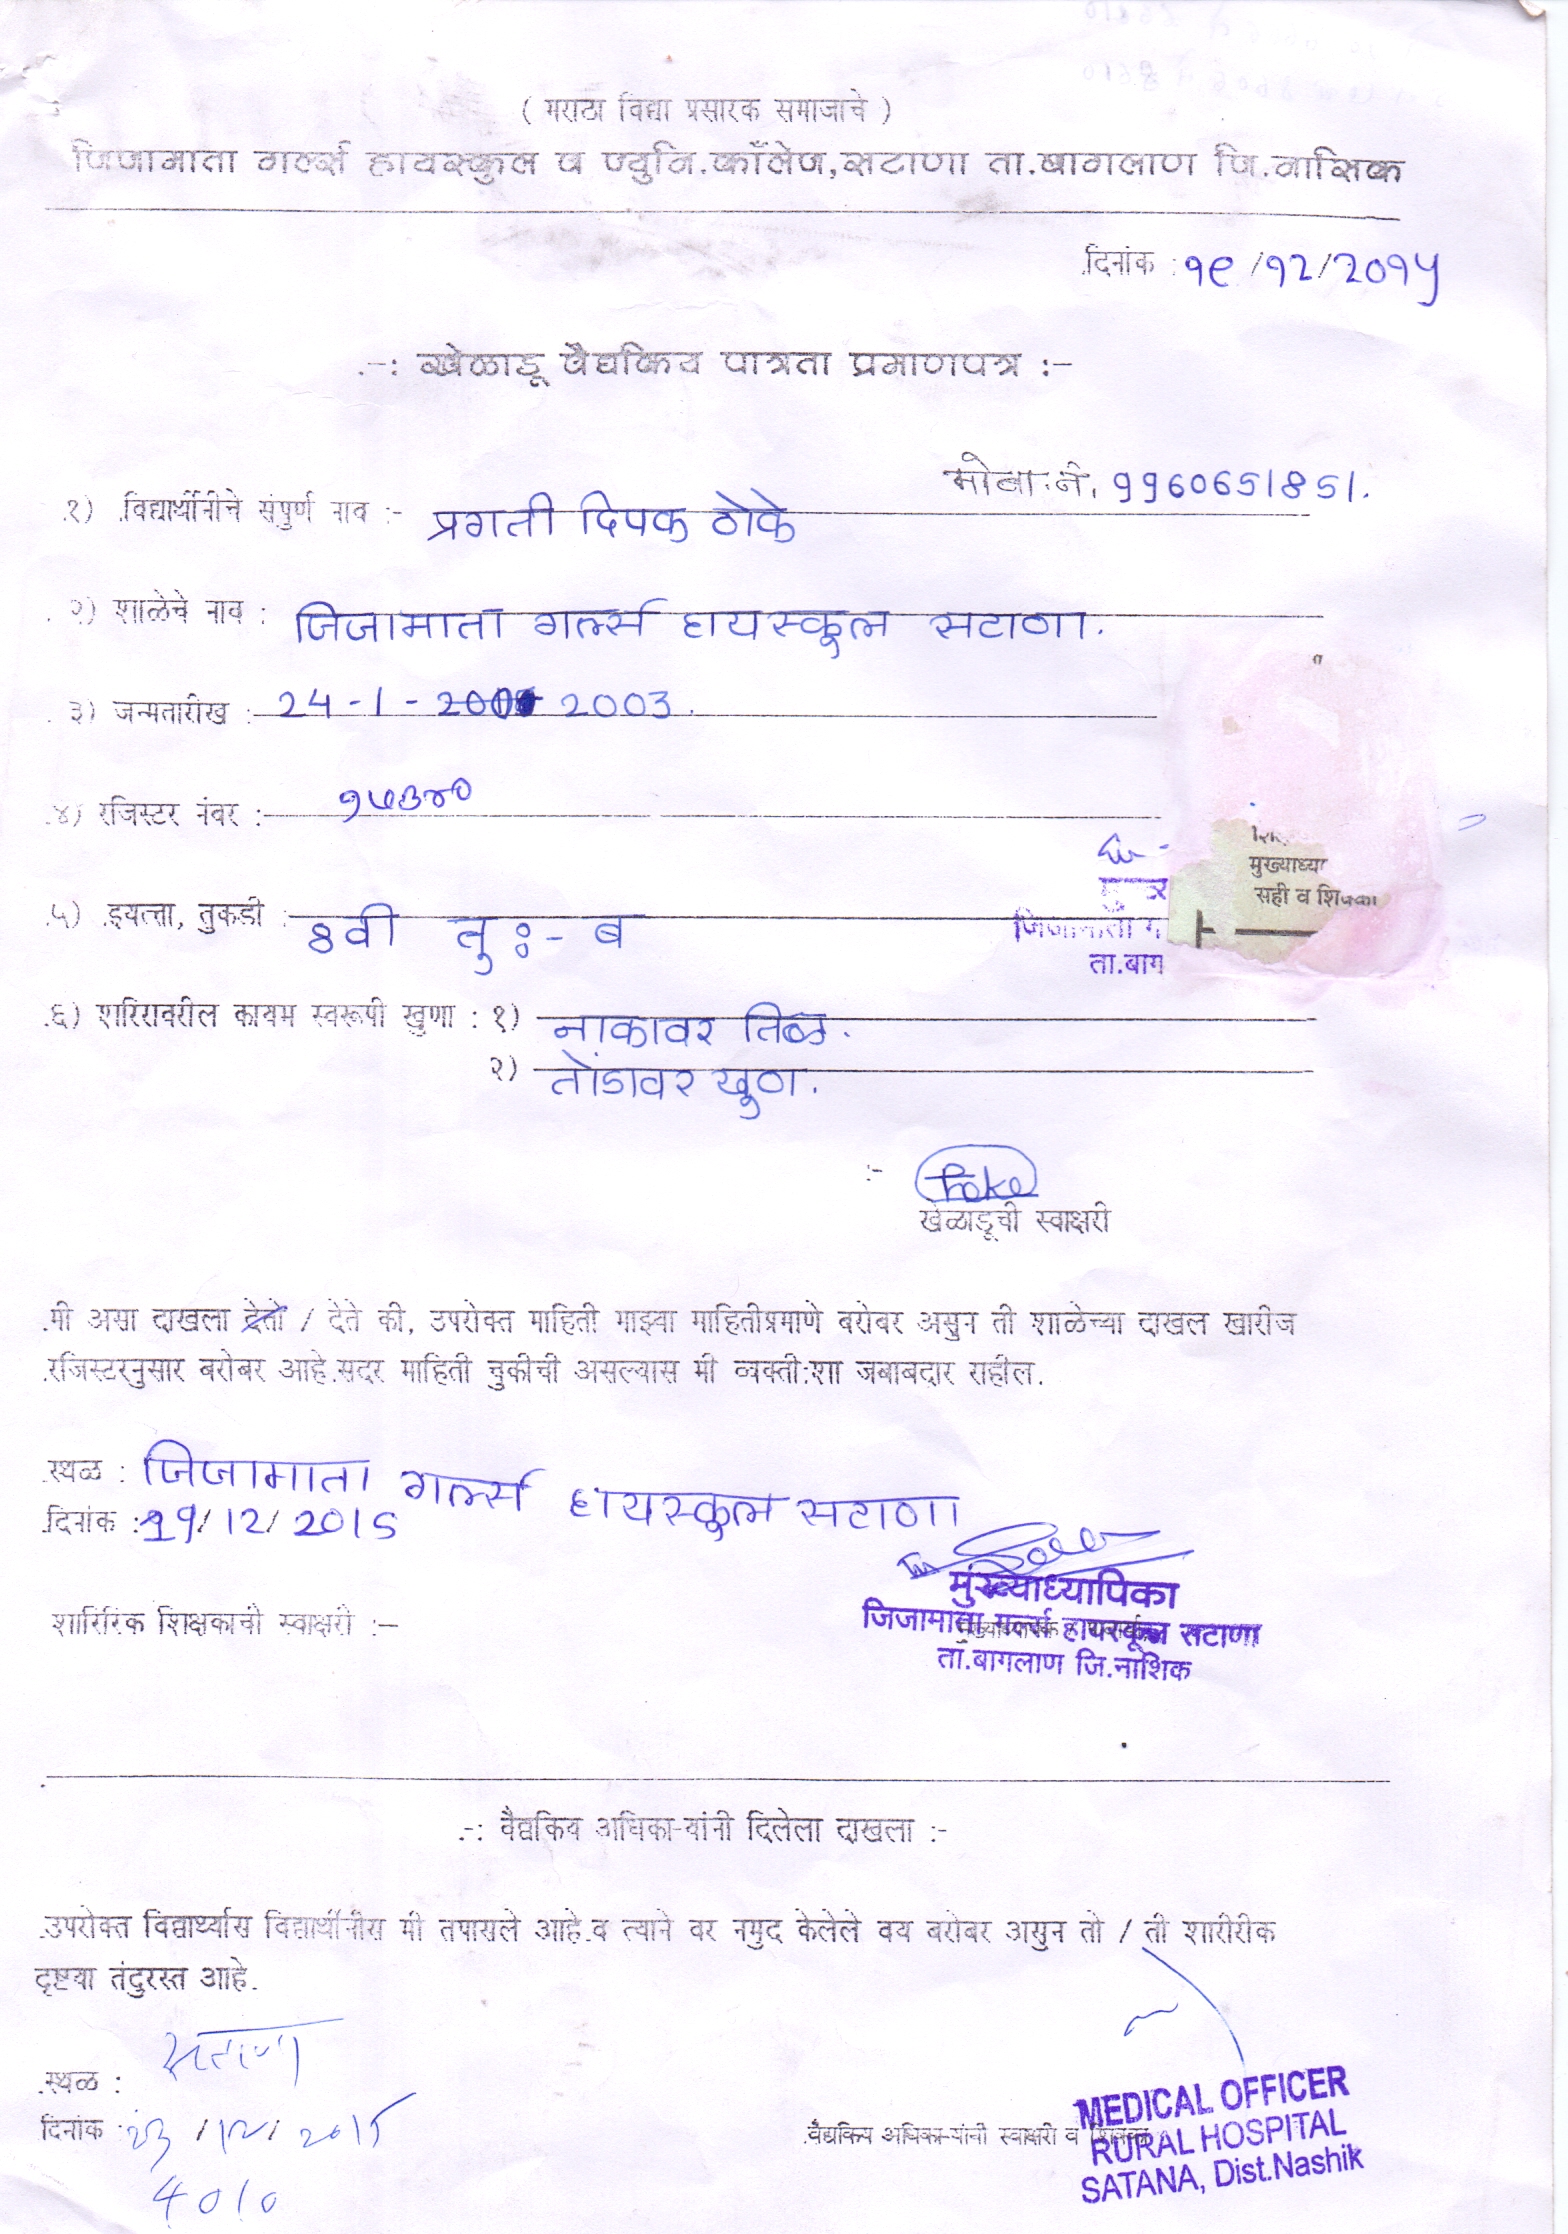 ( मराठा विद्या प्रसारक समाजाचे )
जिजामाता गर्ल्स हायस्कुल व ज्युनि.कॉलेज,सटाणा ता.बागलाण जि.नाशिक
दिनांक : १९/१२/२०१५
-: खेळाडू वैद्यकिय पात्रता प्रमाणपत्र :-
मोबा.नं. 9960651851.
१) विद्यार्थीनीचे संपुर्ण नाव :- प्रगती दिपक ठोके
२) शाळेचे नाव : जिजामाता गर्ल्स हायस्कूल सटाणा.
३) जन्मतारीख : 24-1- 2003.
४) रजिस्टर नंबर :-
मुख्याध्या
सही व शिक्का
५) इयत्ता, तुकडी : 8वी तु :- ब
जिजामाता ग
ता.बाग
६) शरिरावरील कायम स्वरूपी खुणा : १) नाकावर तिळ.
२) तोंडावर खुण.
:-
खेळाडूची स्वाक्षरी
मी असा दाखला देतो / देते की, उपरोक्त माहिती माझ्या माहितीप्रमाणे बरोबर असुन ती शाळेच्या दाखल खारीज
रजिस्टरनुसार बरोबर आहे.सदर माहिती चुकीची असल्यास मी व्यक्ती:शा जबाबदार राहील.
स्थळ : जिजामाता गर्ल्स हायस्कूल सटाणा
दिनांक : 19/12/2015
मुख्याध्यापिका
शारिरिक शिक्षकाची स्वाक्षरी :-
जिजामाता गर्ल्स हायस्कूल सटाणा
ता.बागलाण जि.नाशिक
-: वैद्यकिय अधिका-यांनी दिलेला दाखला :-
उपरोक्त विद्यार्थ्यास विद्यार्थीनीस मी तपासले आहे.व त्याने वर नमुद केलेले वय बरोबर असुन तो / ती शारीरीक
दृष्टया तंदुरस्त आहे.
स्थळ : सटाणा
दिनांक : 23/12/2015
वैद्यकिय अधिका-यांची स्वाक्षरी व शिक्का
MEDICAL OFFICER
RURAL HOSPITAL
SATANA, Dist.Nashik
4010